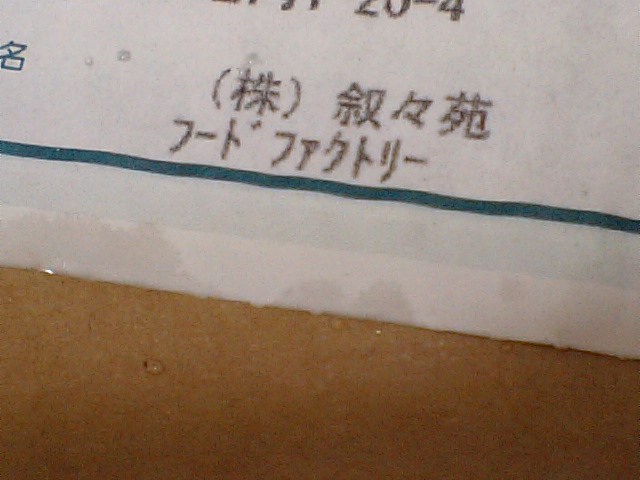 20-4
名
(株)叙々苑
フードファクトリー